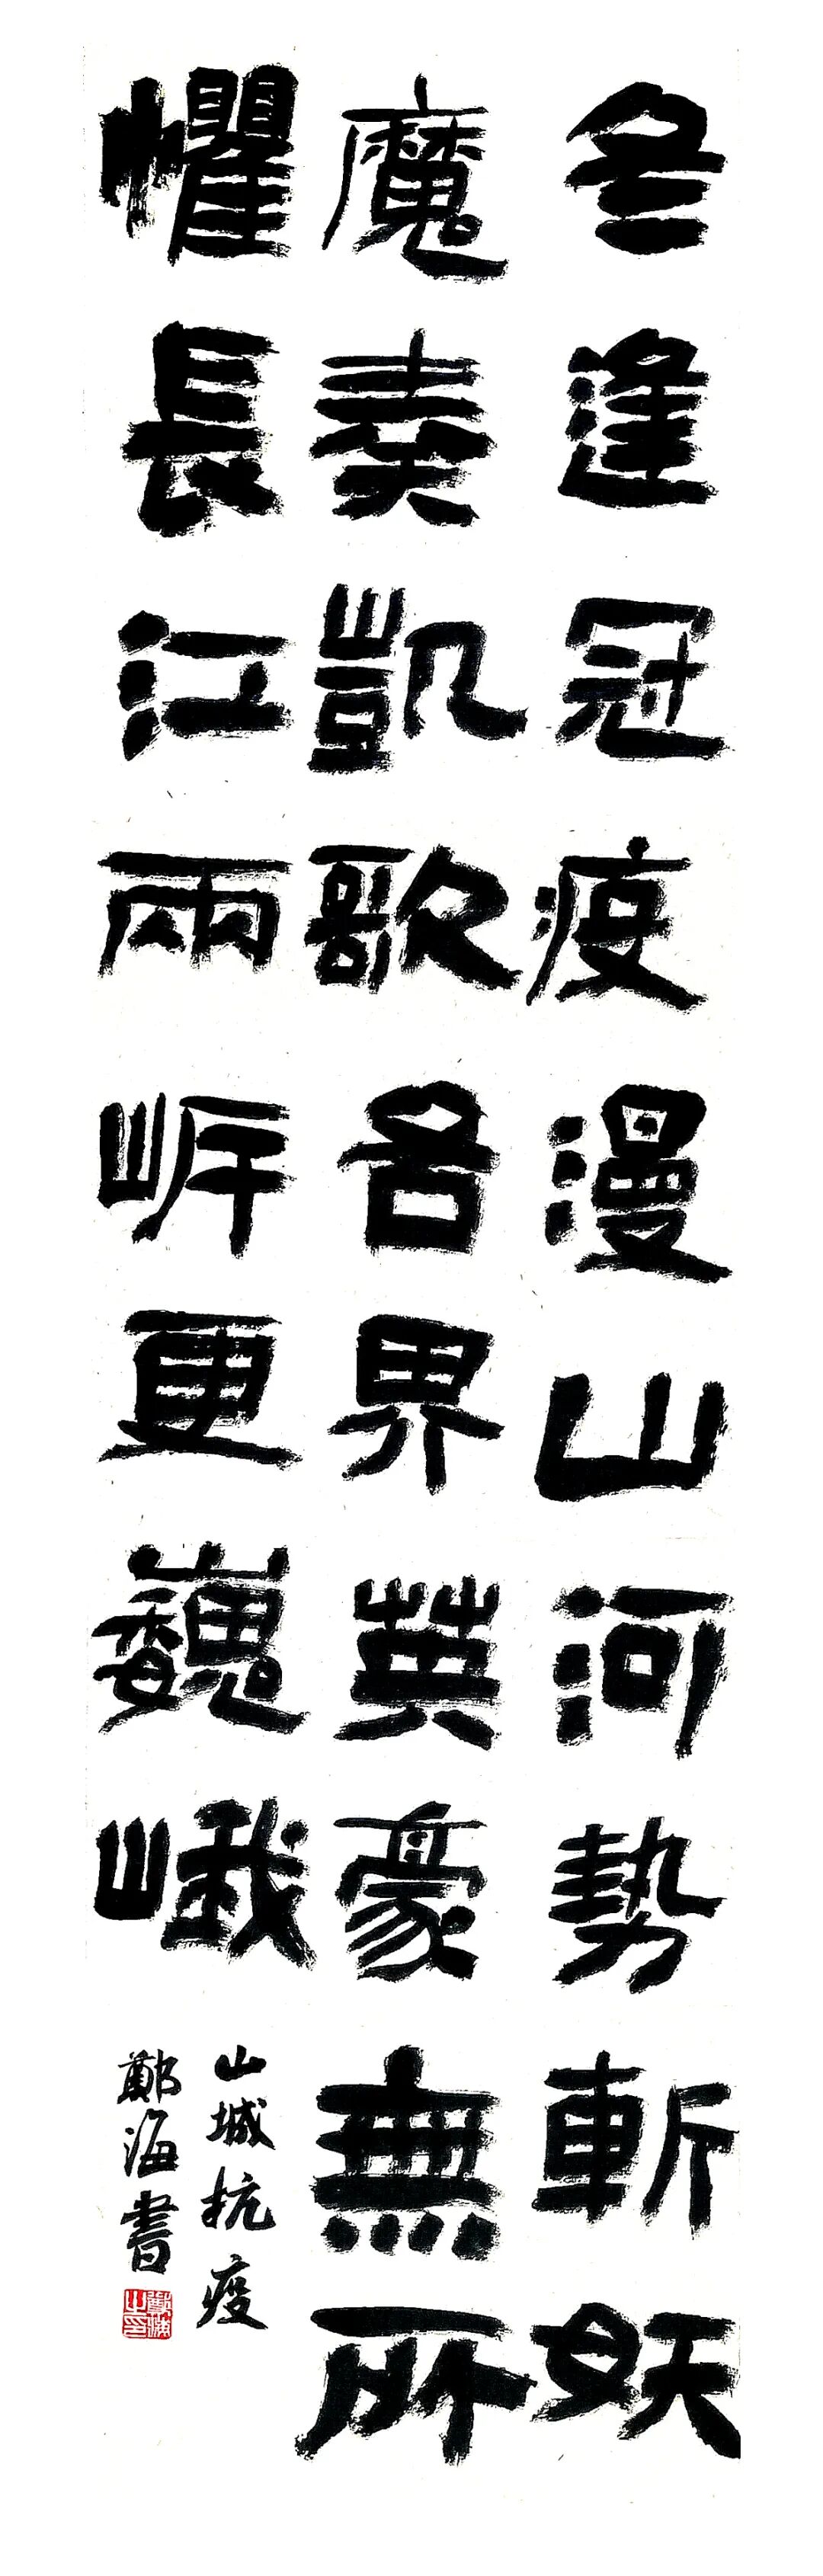 冬逢冠疫漫山河勢斬妖
魔奏凱歌各界英豪無所
懼長江兩岸更巍峨
山城抗疫
鄭海書
鄭海之印